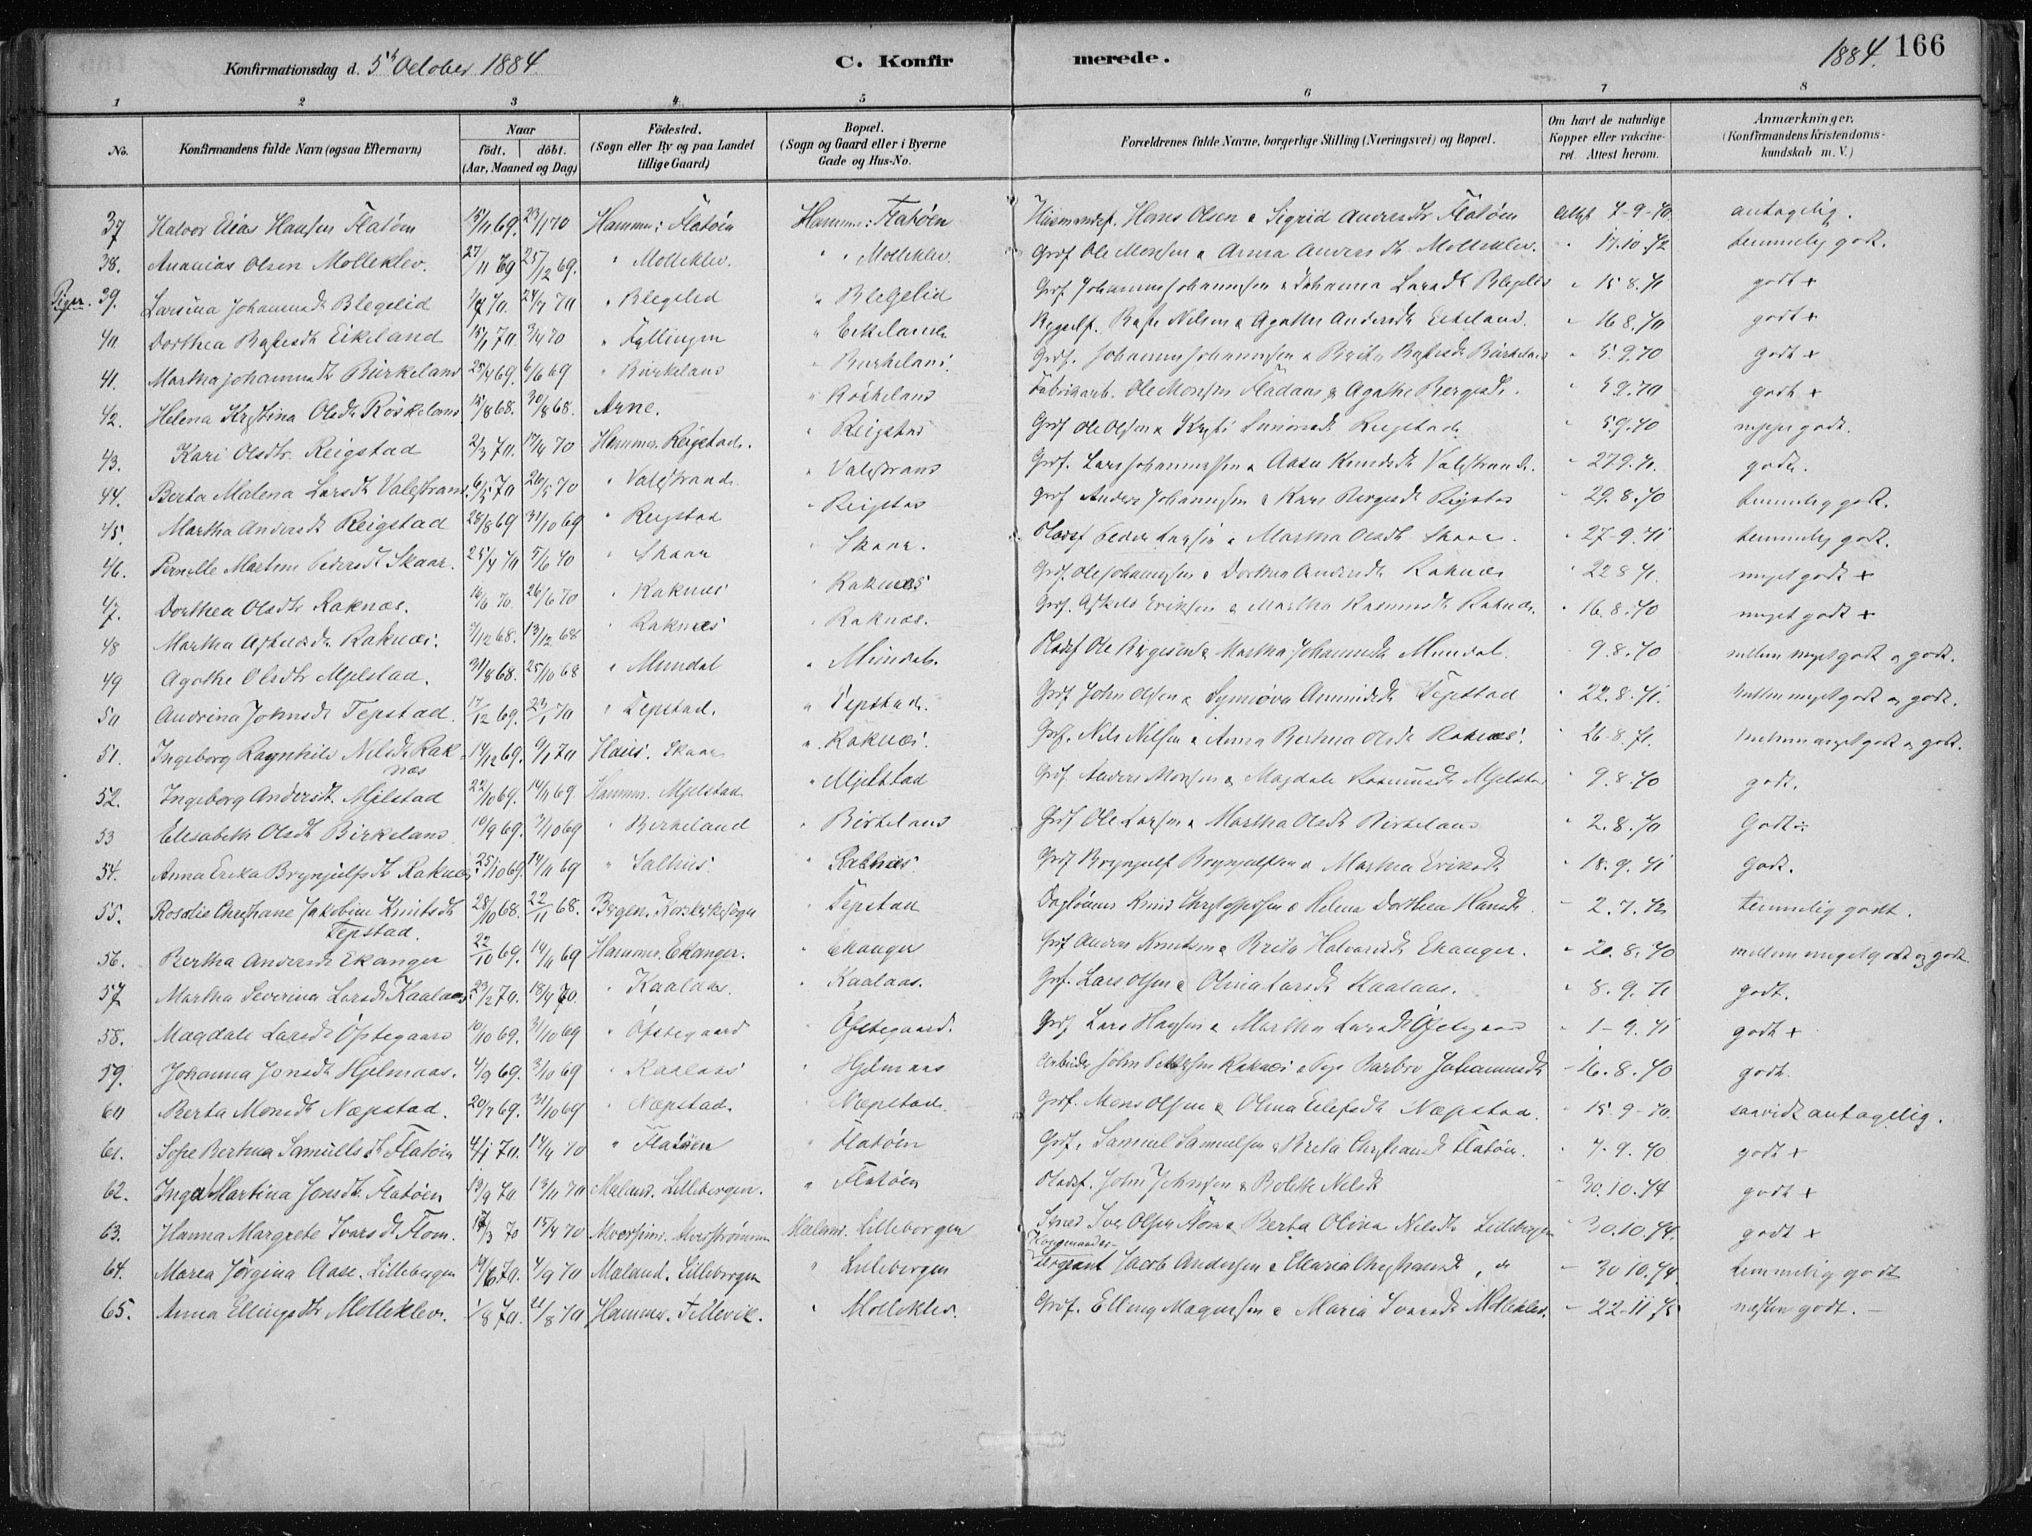 Konfirmationsdag d. 5te October 1884. C. Konfirmerede. 1884. 166
1 2 3 4 5 6 7 8
No. Konfirmandens fulde Navn (ogsaa Efternavn) Naar Födt. döbt. (Aar, Maaned og Dag) Födested. (Sogn eller By og paa Landet tillige Gaard) Bopæl. (Sogn og Gaard eller i Byerne Gade og Hus-No. Forældrenes fulde Navne, borgerlige Stilling (Næringsvei) og Bopæl. Om havt de naturlige Kopper eller vakcineret. Attest herom. Anmærkninger. (Konfirmandens Kristendomskundskab m. V.)
37 Halvor Elias Hansen Flatöen 15/11 69. 23/1 70 Hammer: Flatöen Hammer: Flatöen Husmandsf. Hans Olsen & Sigrid Andersdtr Flatöen Attest 7-9-70 antagelig.
38. Ananias Olsen Molleklev. 27/11 69 25/12 69. " Molleklev. " Molleklev. Grdf Ole Monsen & Anna Andersdtr Molleklev. " 17.10.72 temmelig godt.
Piger. 39. Larsina Johannesdtr Blegelid 24/4 70 " Blegelid " Blegelid Grdf. Johannes Johannessen & Johanna Larsdtr Blegelid " 15.8.71 godt +
40 Dorthea Eikeland 3/4 70 " Fyllingen " Eikeland Nilsen & Agathe Andersdtr Eikeland. " 16.8.70 godt +
41. Martha Johannesdtr Birkeland 25/4 69. 6/6 69 " Birkeland " Birkeland. Grdf. Johannes Johannessen & Brita Birkeland " 5.9.70 godt +
42. Helena Kristina Olsdtr Röskeland 15/8 68. 30/8 68. Arne. " Röskeland Fabrikarb. Ole Monsen Fladaas & Agathe Bergesdtr. " 5.9.70 godt +
43. Kari Olsdtr. Reigstad 2/3 70. 17/4 70 Hammer. Reigstad. " Reigstad Grdf Ole Olsen & Reigstad. " 5.9.70 meget godt.
44. Berta Malena Larsdtr Valestrand. 6/5 70 26/5 70 " Valestrand. " Valestrand Grdf. Lars Johannessen & Aasa Knudsdtr Valestrand. " 27.9.71. godt.
45. Martha Andersdtr Reigstad 28/8 69 31/10 69 " Reigstad " Reigstad Grdf Anders Johannessen & Kari Bergesdtr Reigstad " 29.8.70 temmelig godt.
46. Pernelle Martine Pedersdtr Skaar. 25/4 70 5/6 70 " Skaar " Skaar. Pladsf Peder Larsen & Martha Olsdtr Skaar. " 27-9.71 temmelig godt.
47. Dorthea Olsdtr Raknæs. 10/6 70. 26/6 70 " Raknæs " Raknæs Grdf. Ole Johannessen & Dorthea Andersdtr Raknæs " 22 8 71. meget godt +
48 Martha Raknæs. 3/12 68. 13/12 68 " Raknæs " Raknæs. Grdf. Eriksen & Martha Rasmusdtr Raknæs. " 16.8.70 meget godt +
49 Agathe Olsdtr Mjelstad. 31/8 68. 25/10 68 " Mundal " Mundal. Pladsf Ole & Martha Johannesdtr Mundal. 9.8.70 mellem meget godt og godt.
50 Andrina Johnsdtr Tepstad. 17/12 69. 23/1 70 " Tepstad. " Tepstad. Grdf. John Olsen & Synnöva Tepstad " 22.8.71. mellem meget godt og godt.
51. Ingeborg Ragnhild Nilsdtr Raknæs 14/12 69. 9/1 70 Haus. Skaar " Raknæs. Grdf. Nils Nilsen & Anna Bertina Olsdtr Raknæs. " 26-8.71. mellem meget godt og godt.
52. Ingeborg Andersdtr. Mjelstad 22/10 69. 14/11 69 Hammer. Mjelstad " Mjelstad Grdf Anders Monsen & Magdale Rasmusdtr Mjelstad " 9.8.70 godt.
53 Elisabeth Olsdtr Birkeland 10/9 69. 3/10 69 " Birkeland " Birkeland Grdf Ole Larsen & Martha Olsdtr Birkeland " 2.8.70 Godt
54. Anna Erika Brynjulfsdtr Raknæs. 25/10 69. 14/11 69 " Salhus. " Salhus. Grdf Brynjulf Brynjulfsen & Martha Eriksdtr " 18.9.71 Godt.
55. Rosalie Christiane Jakobine Knutsdtr Tepstad. 28/10 68. 22/11 68. Bergen, Korskirkesogn " Tepstad Knud Christophersen & Helena Dorthea Hansdtr. " 2.7.72 temmelig godt.
56. Bertha Andersdtr Ekanger 22/10 69. 14/11 69 Hammer. Ekanger. " Ekanger Grdf Anders Knutsen & Brita Halvorsdtr Ekanger. " 20.8.70 mellem meget godt og godt.
57 Martha Severina Larsdtr Kaalaas. 23/2 70. 18/4 70. " Kaalaas. " Kaalaas. Grdf. Lars Olsen & Olina Larsdtr Kaalaas. " 8.9.71 godt.
58. Magdale Larsdtr Öftegaard 10/10 69. 31/10 69 " Öftegaard " Öftegaard. Grdf Lars Hansen & Martha Larsdtr Öftegaard " 1-9.71 godt +
59. Johanna Jonsdtr Hjelmaas. 4/9 69. 3/10 69 " Kaalaas " Hjelmaas Arbeider John Raknæs & Pige Barbro Johannesdtr - 16.8.70 godt.
60 Berta Monsdtr Næpstad. 20/7 69. 31/10 69 " Næpstad. " Næpstad. Grdf. Mons Olsen & Olina Eilefsdtr Næpstad. " 15.9-70. saavidt antagelig.
61. Sofie Bertina Samuelsdtr Flatöen 4/1 70. 14/4 70 " Flatöen " Flatöen Grdf. Samuel Samuelsen & Brita Christiansdtr Flatöen. " 7-9.70 godt +
62. Inga Martina Jonsdtr. Flatöen 19/9 70 13/11 70 Maland. Lillebergen. " Flatöen Pladsf. John Johnsen & Bolette Nilsdtr " 30.10.74 godt +
63. Hanna Margrete Ivarsdtr Flom. 17/3 70 15/4 70 Alverstrømmen Maland. Lillebergen Iver Olsen Flom & Berta Olina Nilsdtr Lillebergen - 30.10.74. godt +
64. Marea Jörgina Aase. Lillebergen 19/6 70. 4/9 70 Maland. Lillebergen " Lillebergen Sergeant Jacob Andersen & Maria Christiansdtr, do - 30 10.74. temmelig godt
65. Anna Ellingsdtr Molleklev. 1/8 70. 21/8 70 Hammer. Tellevik. " Molleklev. Grdf. Elling Magnesen & Maria Ivarsdtr Molleklev. - 22-11 75 næsten godt. -